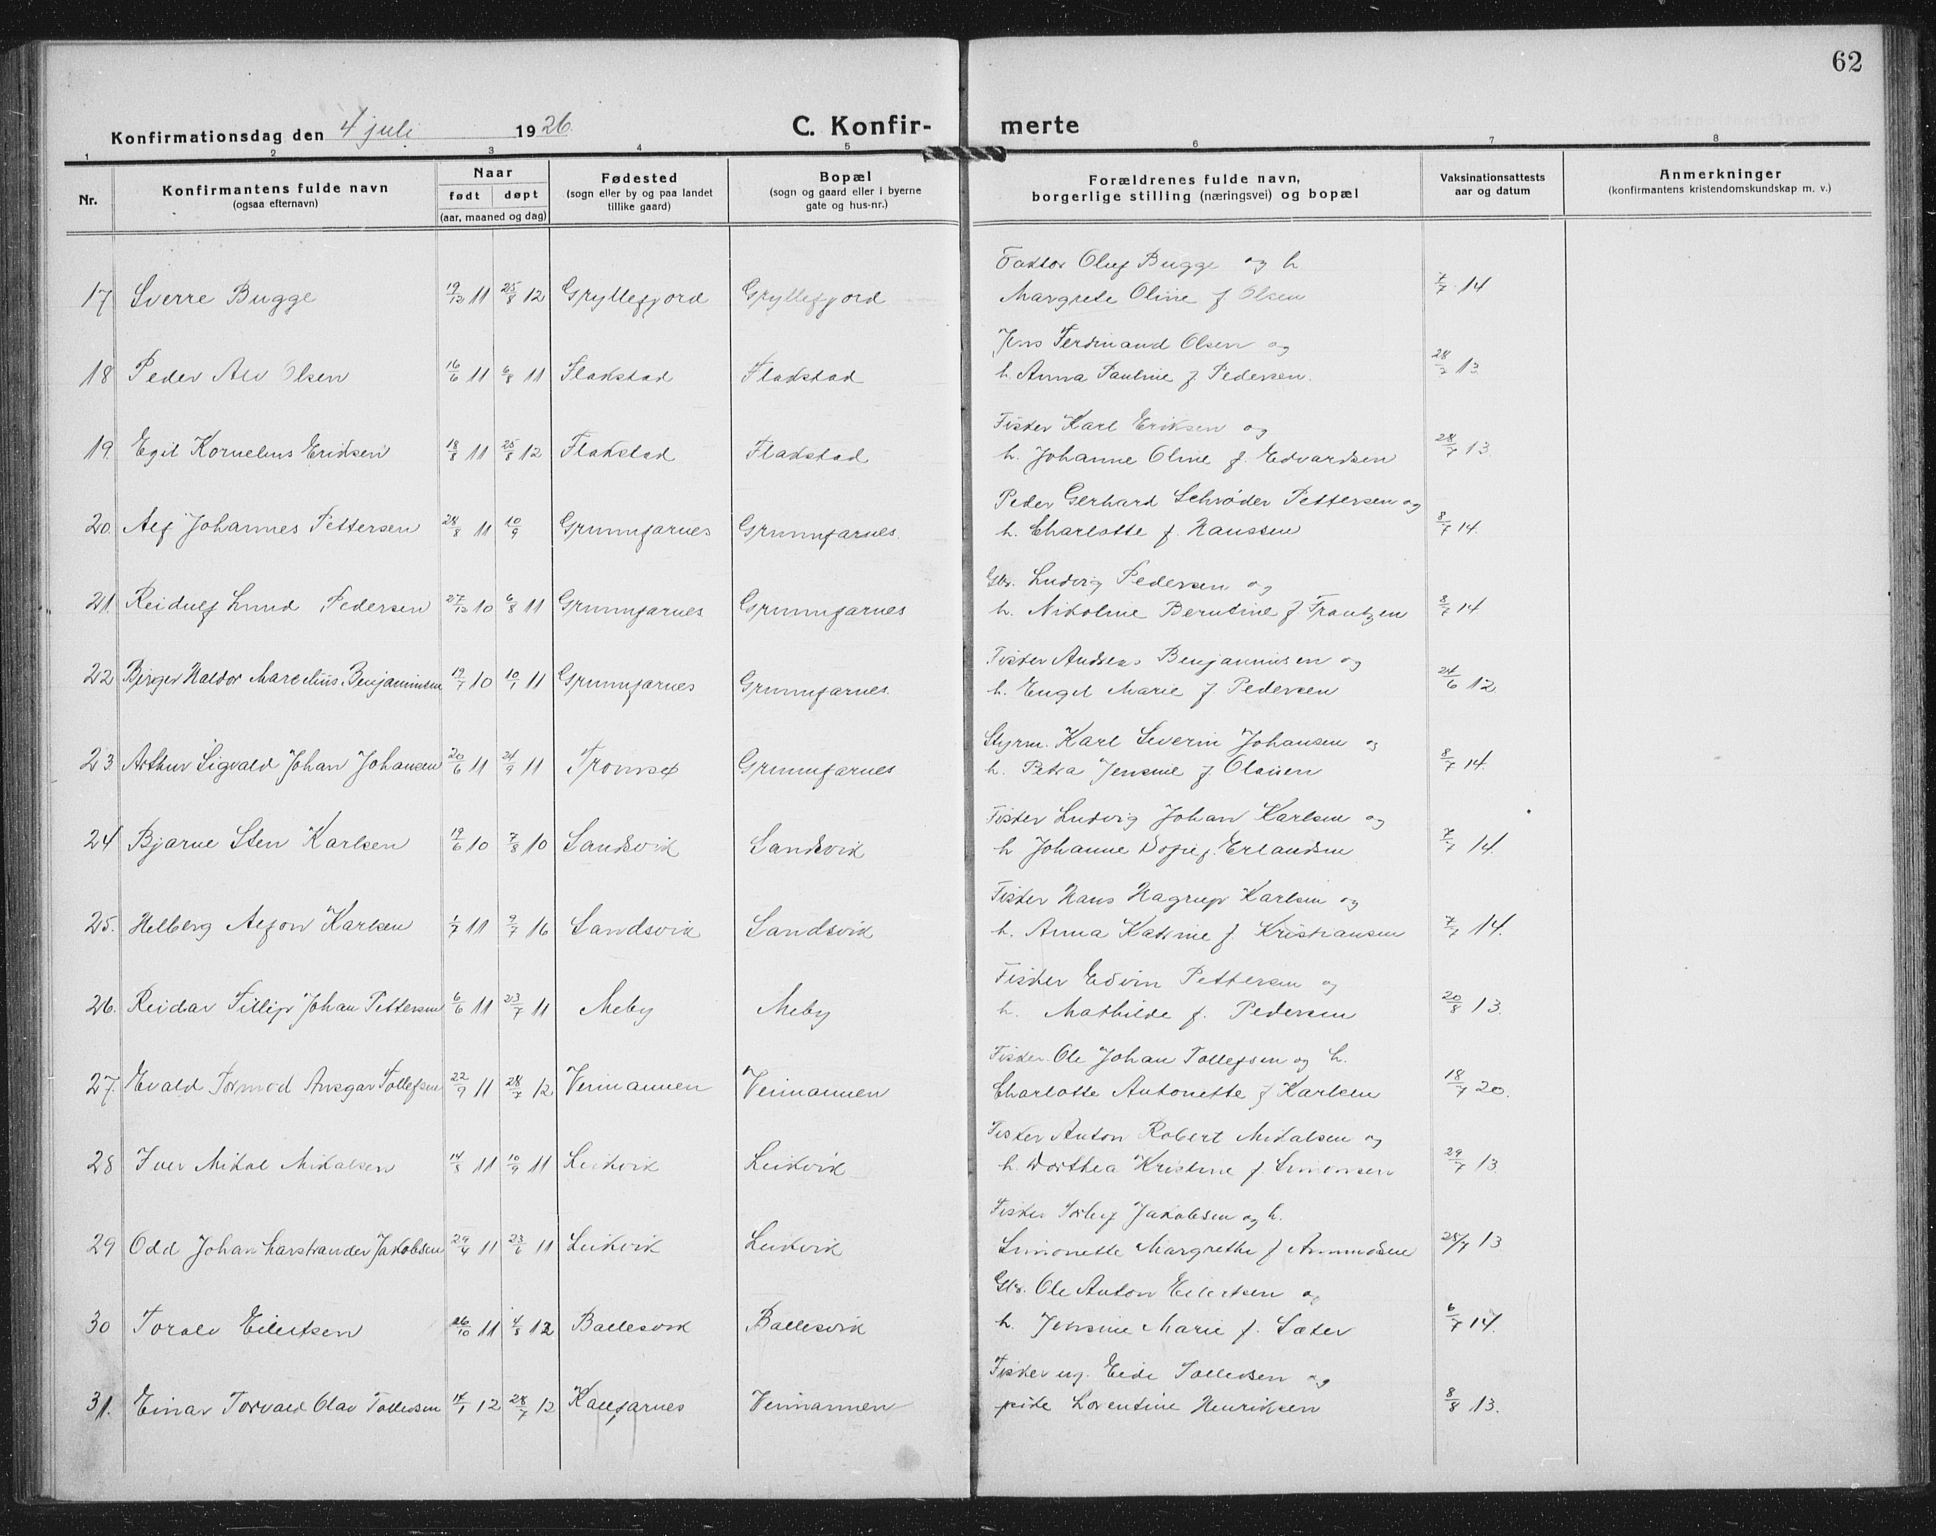 62
Konfirmationsdag den 4 juli 1926. C. Konfir- merte
1 2 3 4 5 6 7 8
Nr. Konfirmantens fulde navn (ogsaa efternavn) Naar født døpt (aar, maaned og dag) Fødested (sogn eller by og paa landet tillike gaard) Bopæl (sogn og gaard eller i byerne gate og hus-nr.) Forældrenes fulde navn, borgerlige stilling (næringsvei) og bopæl Vaksinationsattests aar og datum Anmerkninger (konfirmantens kristendomskundskap m. v.)
Faktor Oluf Bugge og h
17 Sverre Bugge 19/12 11 25/8 12 Gryllefjord Gryllefjord Margrete Oline f Olsen 7/7 14
Jens Ferdinand Olsen og
18 Peder Alv Olsen 16/6 11 6/8 11 Flakstad Flakstad h. Anna Pauline f Pedersen. 28/7 13.
Fisker Karl Eriksen og
19. Egil Kornelius Eriksen 18/8 11 25/8 12 Flakstad Flakstad h. Johanne Oline f. Edvardsen 28/7 13.
Peder Gerhard Schrøder Pettersen og
20. Alf Johannes Pettersen 28/8 11 10/9 Grumfarnes Grumfarnes. h. Charlotte f. Hanssen 8/7 14.
Gbr. Ludvig Pedersen og
21. Reidulf Lund Pedersen 27/12 10 6/8 11 Grumfarnes Grumfarnes h. Nikoline Berntine f Frantzen 8/7 14
Fisker Andreas Benjaminsen og
22 Birger Haldor Marcelius Benjaminsen 19/7 10 10/1 11 Grumfarnes Grumfarnes. h. Engel Marie f Pedersen 24/6 12
Styrm. Karl Severin Johansen og
23. Arthur Sigvald Johan Johansen 20/6 11 24/9 11 Tromsø Grumfarnes h. Petra Jensine f Olausen 8/7 14.
Fisker Ludvig Johan Karlsen og
24 Bjarne Sten Karlsen 19/6 10 7/8 10 Sandsvik Sandsvik h Johanne Sofie f. Erlandsen 7/7 14.
Fisker Hans Hagrup Karlsen og
25. Helberg Alfon Karlsen 1/7 11 9/7 16 Sandsvik Sandsvik h. Anna Katrine f. Kristiansen 7/7 14.
Fisker Edvin Pettersen og
26. Reidar Fillip Johan Pettersen 6/6 11 23/7 11 Meby Meby h. Mathilde f. Pedersen 20/8 13.
Fisker. Ole Johan Tollefsen og h.
27. Evald Tormod Ansgar Tollefsen 22/9 11 28/7 12 Veimannen Veimannen Charlotte Antonette f Karlsen 18/7 20.
Fisker Anton Robert Mikalsen og
28 Iver Mikal Mikalsen 14/8 11 10/9 11 Leikvik Leikvik h. Dorthea Kristine f. Simonsen 29/7 13.
Fisker Torleif Jakobsen og h.
29 Odd Johan Larstrander Jakobsen 29/4 11 23/6 11 Leikvik Leikvik Simonette Margrethe f Ammundsen 28/7 13
Gbr. Ole Anton Eilertsen og
30 Toralv Eilertsen 26/10 11 4/8 12 Ballesvik Ballesvik h. Jensine Marie f. Sæter 6/7 14.
Fisker ug. Eide Tollevsen og
31. Einar Torvald Olav Tollevsen 14/1 12 28/7 12 Kalfarnes Veimannen pike Lorentine Henriksen 8/8 13.